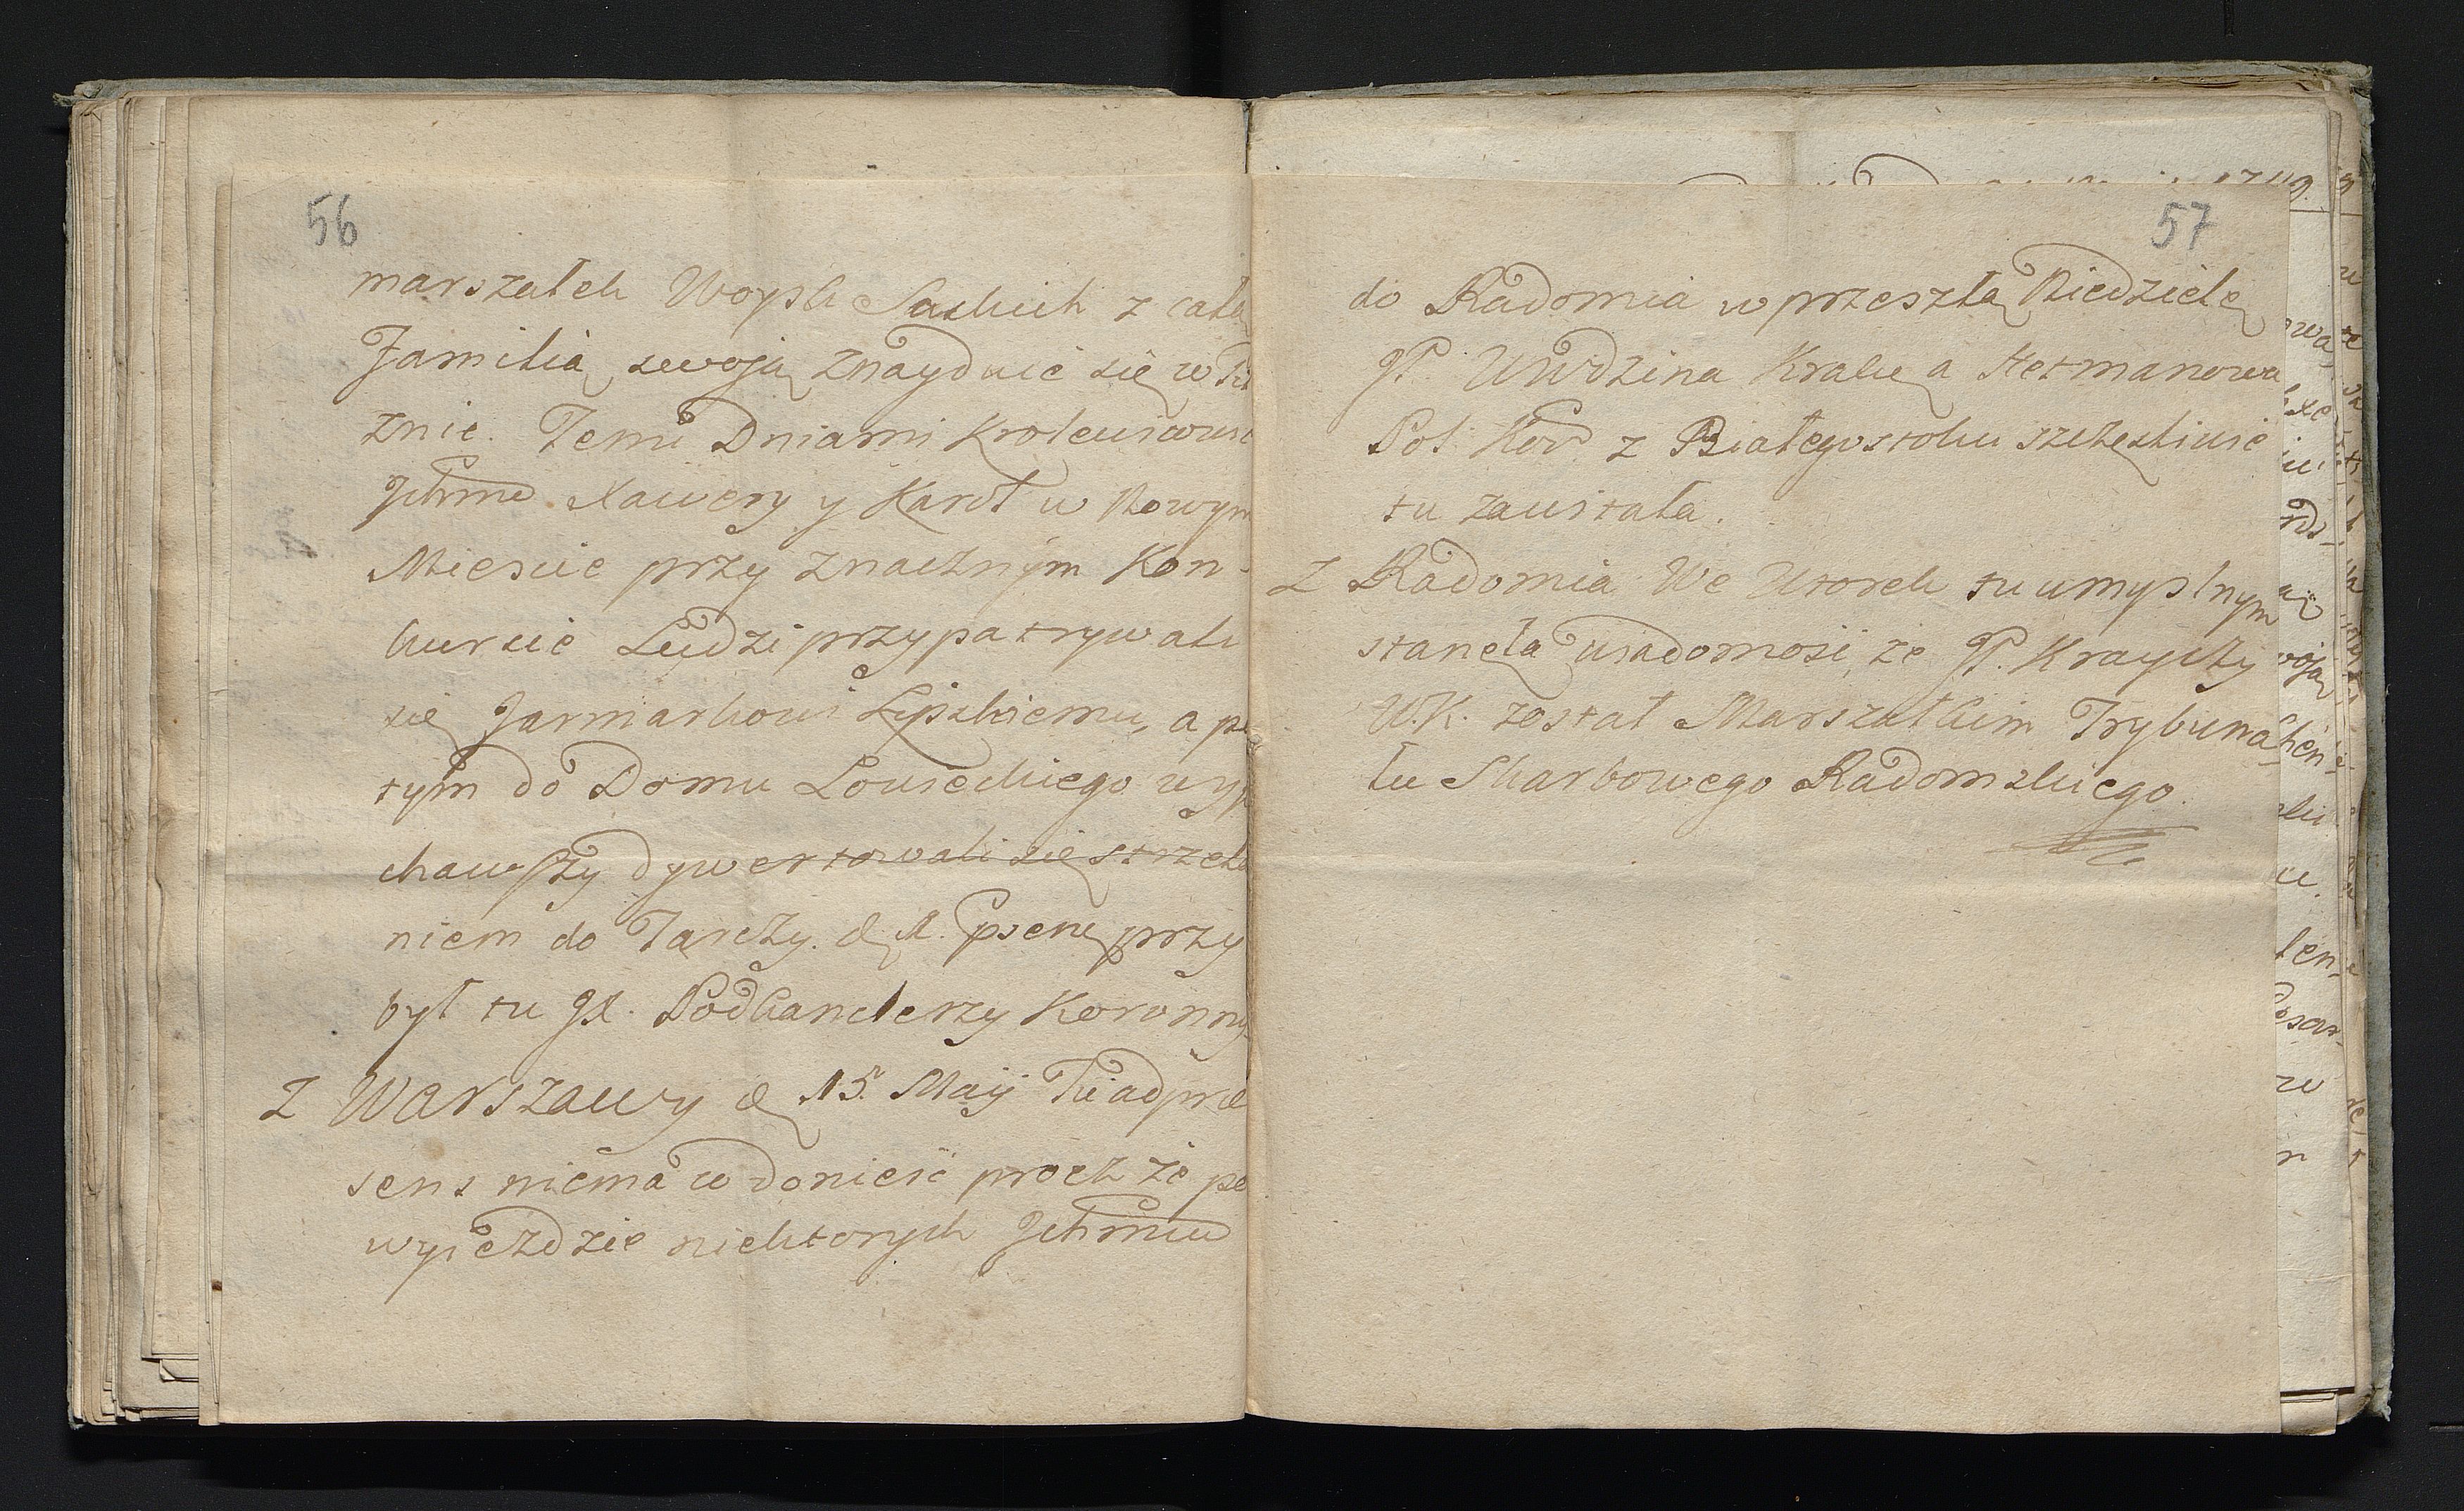 56
marszałek Woysk Saskich z całą
Familią swoją znayduie się w
znie. Temi Dniami Krolewicowie
Jchmć Xawery y Karol w Nowym
Miescie przy znacznym Kon-
kursie Ludzi przypatrywali
się Jarmarkowi Lipskiemu, a po
tym do Domu Łowieckiego wyje
chawszy dywertowali się strzela
niem do Tarczy. d. 1. psene przy
był tu JX. Podkanclerzy Koronny
Z Warszawy d 15. Maij Tu ad prae
sens niema co donieść procz że po
wyieździe niektorych Jchmciow
57
do Radomia w przeszłą Niedzielę
JP. Wwdzina Krakę a Hetmanowa
Pol: Kor z Białegostoku szczęsliwie
tu zawitała.
Z Radomia We Wtorek tu umyslnym
stanęła wiadomość, że JP. Krayczy
W.K. został Marszałkiem Trybuna
łu Skarbowego Radomskiego.